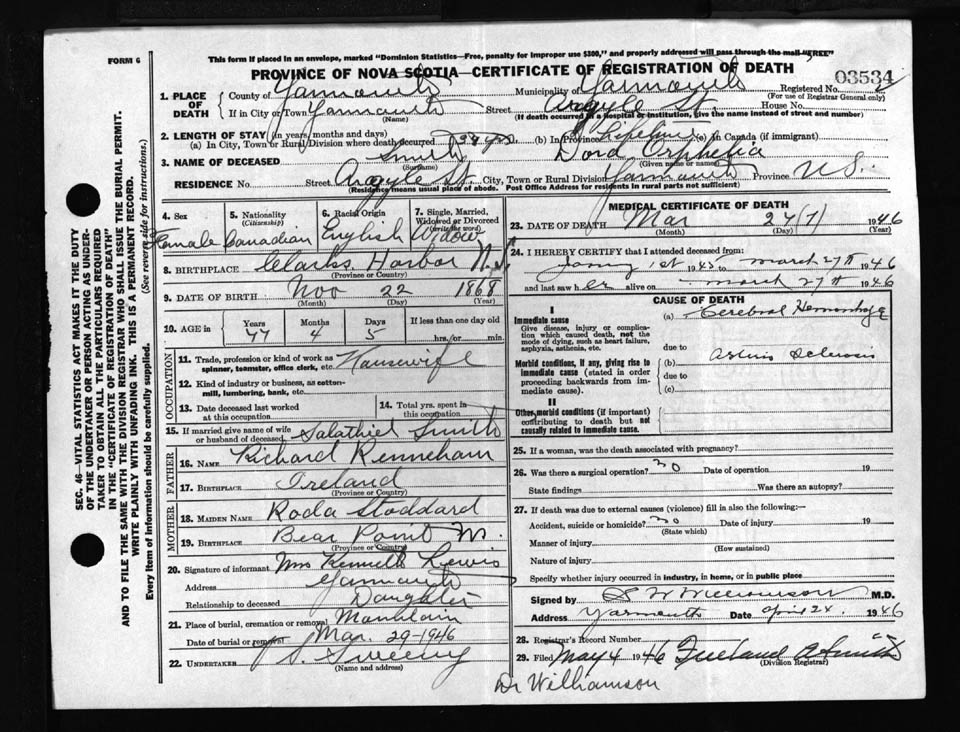 FORM 6
This form if placed in an envelope, marked "Dominion Statistics—Free, penalty for improper use $300," and properly addressed will pass through the mail "FREE"
PROVINCE OF NOVA SCOTIA—CERTIFICATE OF REGISTRATION OF DEATH
03534
SEC. 46—VITAL STATISTICS ACT MAKES IT THE DUTY
OF THE UNDERTAKER OR PERSON ACTING AS UNDER-
TAKER TO OBTAIN ALL THE PARTICULARS REQUIRED
IN THE "CERTIFICATE OF REGISTRATION OF DEATH"
AND TO FILE THE SAME WITH THE DIVISION REGISTRAR WHO SHALL ISSUE THE BURIAL PERMIT.
WRITE PLAINLY WITH UNFADING INK. THIS IS A PERMANENT RECORD.
Every item of information should be carefully supplied. (See reverse side for instructions.)
1. PLACE OF DEATH
County of Yarmouth Municipality of Yarmouth Registered No.
(For use of Registrar General only)
If in City or Town Yarmouth Street Argyle St. House No.
(Name) (If death occurred in a hospital or institution, give the name instead of street and number)
2. LENGTH OF STAY (in years, months and days)
(a) In City, Town or Rural Division where death occurred yrs (b) In Province Lifetime (c) In Canada (if immigrant)
3. NAME OF DECEASED Smith Dora Orphelia
(Surname) (Given name or names)
RESIDENCE No. Street Argyle St. City, Town or Rural Division Yarmouth Province N.S.
(Residence means usual place of abode. Post Office Address for residents in rural parts not sufficient)
4. Sex Female
5. Nationality (Citizenship) Canadian
6. Racial Origin English
7. Single, Married, Widowed or Divorced (write the word) Widow
8. BIRTHPLACE Clarks Harbor N.S.
(Province or Country)
9. DATE OF BIRTH Nov 22 1868
(Month) (Day) (Year)
10. AGE in Years 77 Months 4 Days 5 If less than one day old hrs. or min.
OCCUPATION
11. Trade, profession or kind of work as spinner, teamster, office clerk, etc. Housewife
12. Kind of industry or business, as cotton-mill, lumbering, bank, etc.
13. Date deceased last worked at this occupation
14. Total yrs. spent in this occupation
15. If married give name of wife or husband of deceased Salathiel Smith
FATHER
16. NAME Richard Kenneham
17. BIRTHPLACE Ireland
(Province or Country)
MOTHER
18. MAIDEN NAME Roda Stoddard
19. BIRTHPLACE Bear Point
(Province or Country)
20. Signature of informant Mrs Kenneth Lewis
Address Yarmouth
Relationship to deceased Daughter
21. Place of burial, cremation or removal
Date of burial or removal Mar. 29-1946
22. UNDERTAKER J. Sweeny
(Name and address)
MEDICAL CERTIFICATE OF DEATH
23. DATE OF DEATH Mar 27 (7) 1946
(Month) (Day) (Year)
24. I HEREBY CERTIFY that I attended deceased from:
1st 1945 to March 27th 1946
and last saw her alive on March 27th 1946
CAUSE OF DEATH
I
Immediate cause (a) Cerebral Hemorrhage
Give disease, injury or complication which caused death, not the mode of dying, such as heart failure, asphyxia, asthenia, etc.
due to
Morbid conditions, if any, giving rise to immediate cause (stated in order proceeding backwards from immediate cause).
(b)
due to
(c)
II
Other morbid conditions (if important) contributing to death but not causally related to immediate cause.
25. If a woman, was the death associated with pregnancy?
26. Was there a surgical operation? no Date of operation 19
State findings Was there an autopsy?
27. If death was due to external causes (violence) fill in also the following:—
Accident, suicide or homicide? no Date of injury 19
(State which)
Manner of injury
(How sustained)
Nature of injury
Specify whether injury occurred in industry, in home, or in public place
Signed by S W Williamson M.D.
Address Yarmouth Date April 24. 1946
28. Registrar's Record Number
29. Filed May 4 1946 Freeland A Smith
(Division Registrar)
Dr Williamson